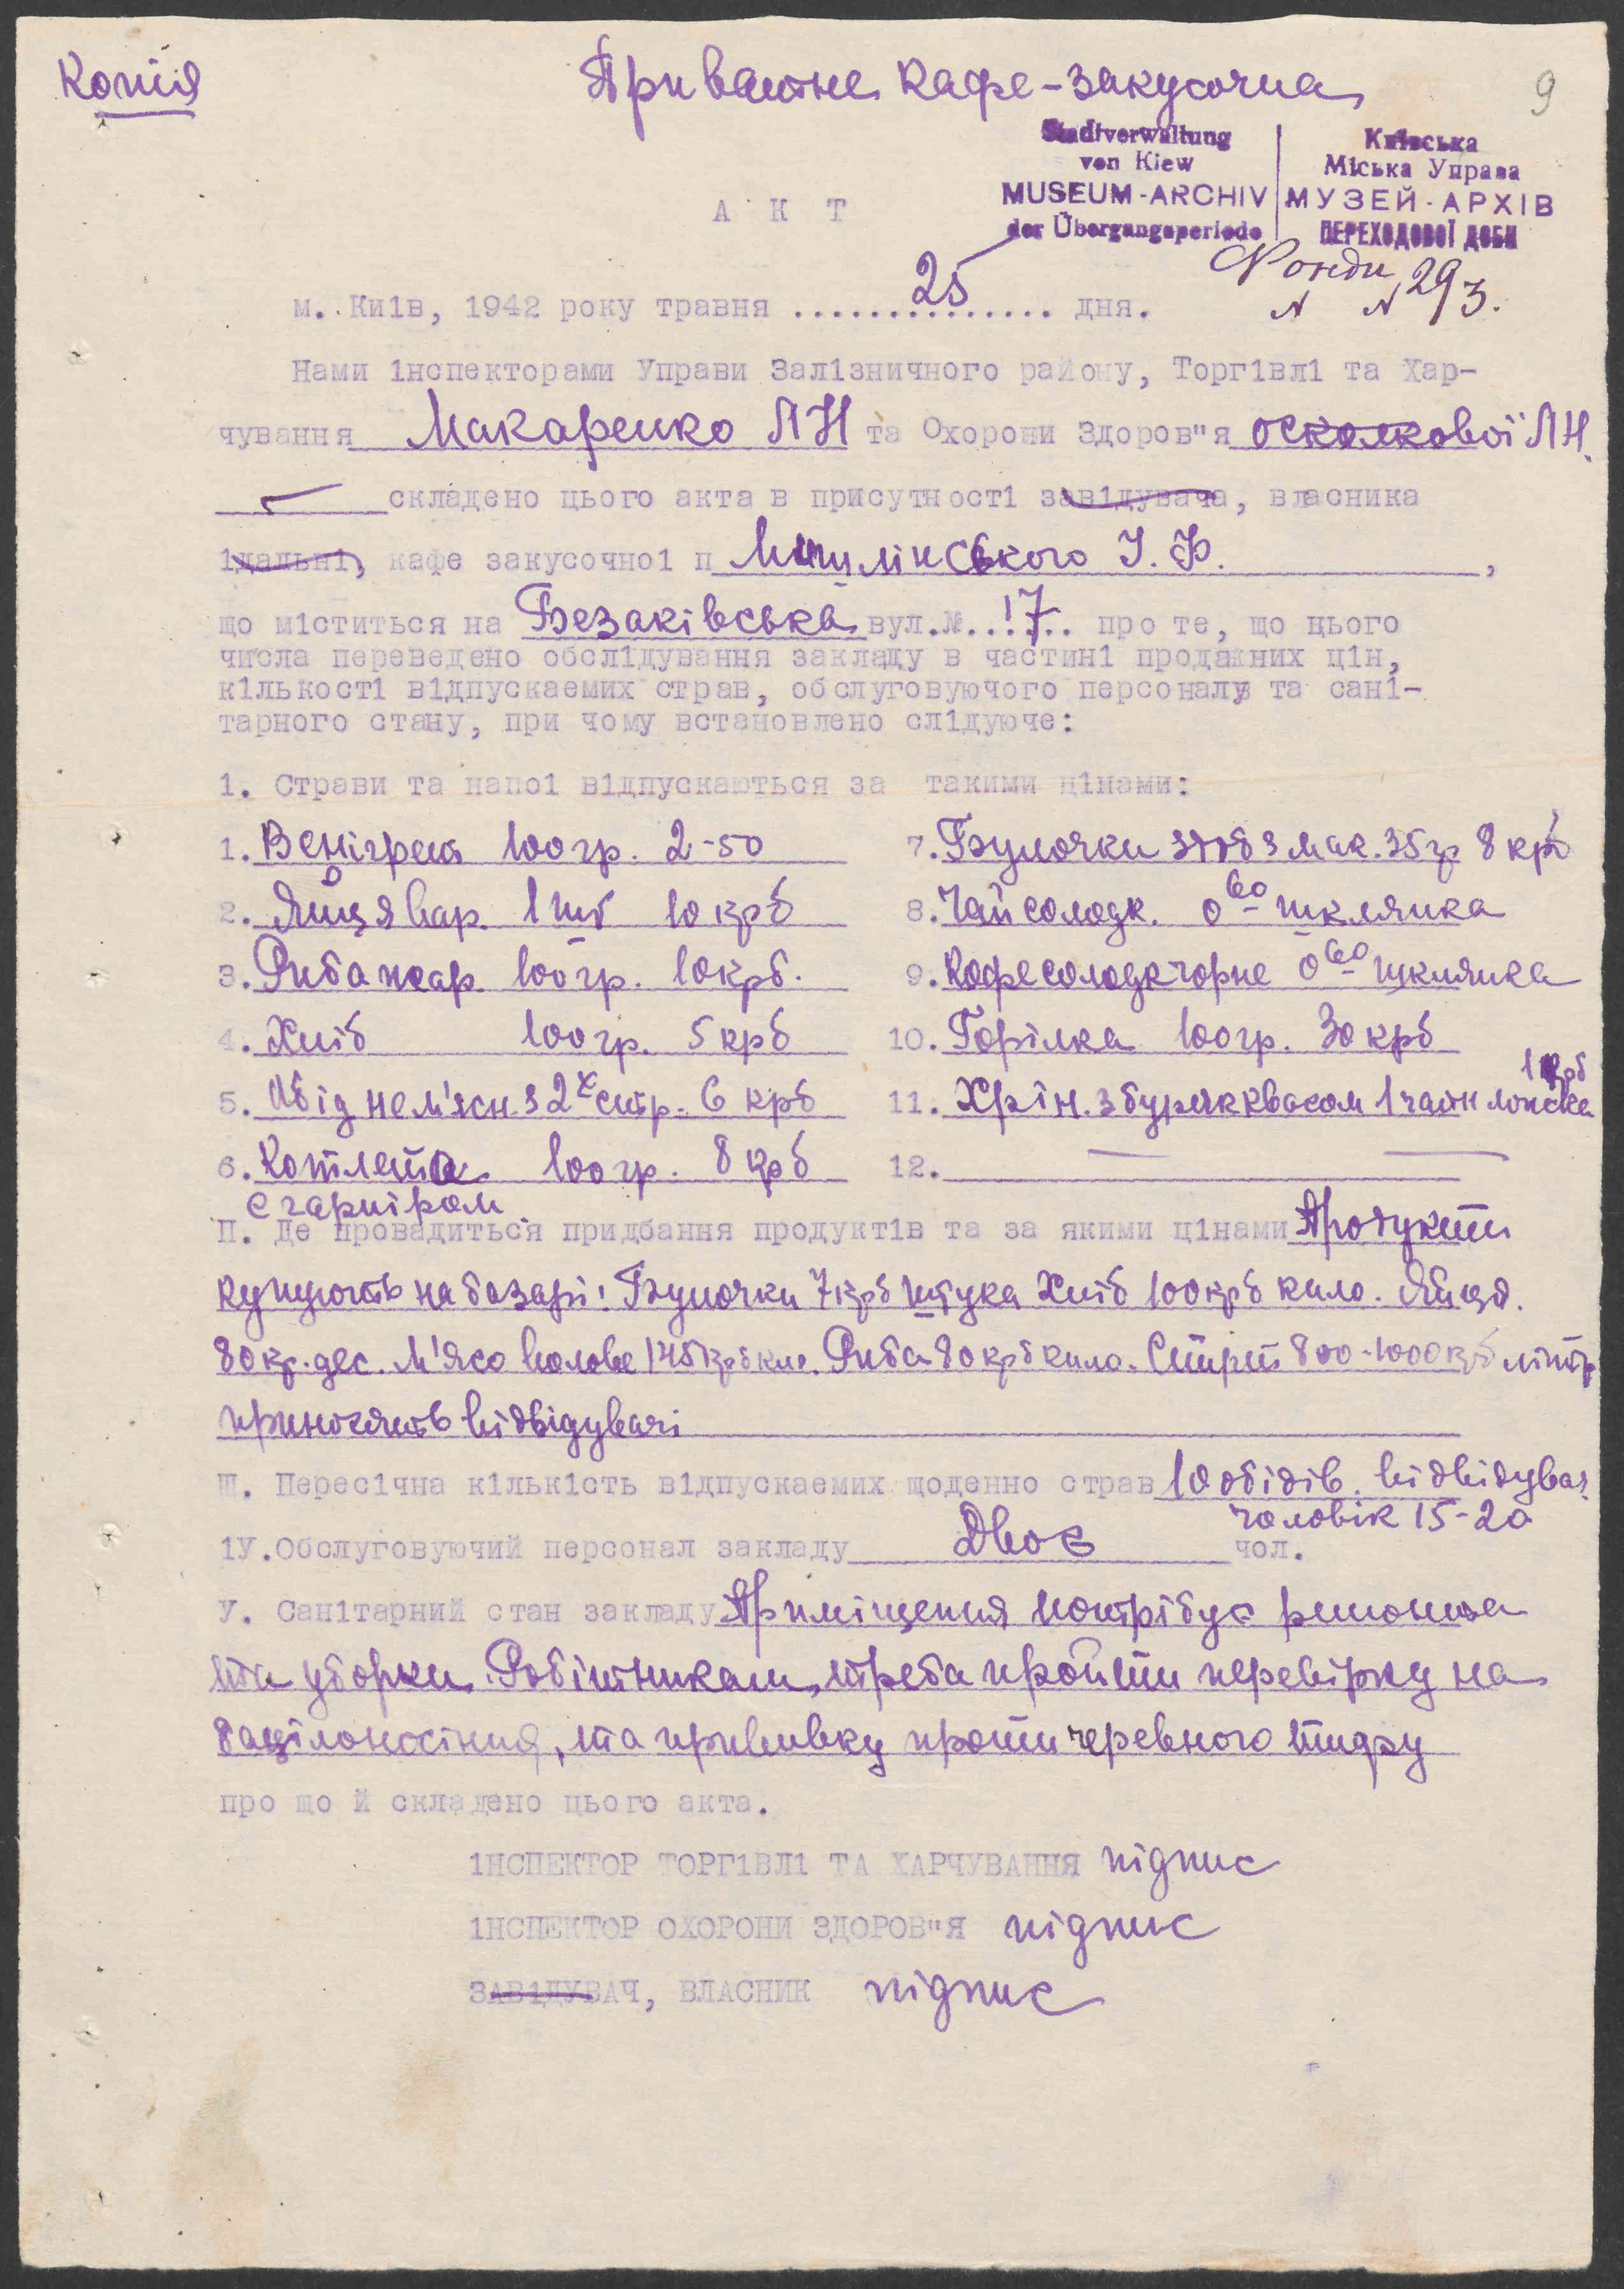 Копія
Приватне кафе-закусочна
9
Stadtverwaltung
von Kiew
MUSEUM-ARCHIV
der Übergangsperiode
Київська
Міська Управа
МУЗЕЙ-АРХІВ
ПЕРЕХОДОВОЇ ДОБИ
А К Т
293.
м. Київ, 1942 року травня 25 дня.
Нами інспекторами Управи Залізничного району, Торгівлі та Хар-
чування Макаренко ЛН та Охорони Здоров"я Осколкової ЛН.
складено цього акта в присутності завідувача, власника
їдальні, кафе закусочної п І. Ф.,
що міститься на Безаківська вул.№ 17 про те, що цього
числа переведено обслідування закладу в частині продажних цін,
кількості відпускаемих страв, обслуговуючого персоналу та сані-
тарного стану, при чому встановлено слідуюче:
1. Страви та напої відпускаються за такими цінами:
1. Венігрет 100 гр. 2-50
2. Яйця вар. 1 шт 10 крб
3. Риба жар. 100 гр. 10 крб.
4. Хліб 100 гр. 5 крб
5. Обід нем'ясн. з 2х стр. 6 крб
6. Котлета 100 гр. 8 крб
с гарніром
7. Булочки з мак. 35 гр 8 крб
8. Чай солодк. 0 60 шклянка
9. Кофе солодк чорне 0 60 шклянка
10. Горілка 100 гр. 30 крб
11. Хрін. з буряк квасом 1 чайн ложка 1 крб
12.
П. Де провадиться придбання продуктів та за якими цінами Продукти
купують на базарі: Булочки 7 крб штука Хліб 100 крб кило. Яйця.
80 кр. дес. М'ясо волове 145 крб кило. Риба 80 крб кило. Спирт 800-1000 крб літр
приносять відвідувачі
Ш. Пересічна кількість відпускаемих щоденно страв 10 обідів. відвідувач.
чоловік 15-20
1У. Обслуговуючий персонал закладу Двоє чол.
У. Санітарний стан закладу Приміщення потрібує ремонта
та уборки. Робітникам, треба пройти перевірку на
бацілоносіння, та прививку проти черевного тифу
про що й складено цього акта.
ІНСПЕКТОР ТОРГІВЛІ ТА ХАРЧУВАННЯ підпис
ІНСПЕКТОР ОХОРОНИ ЗДОРОВ"Я підпис
ЗАВІДУВАЧ, ВЛАСНИК підпис